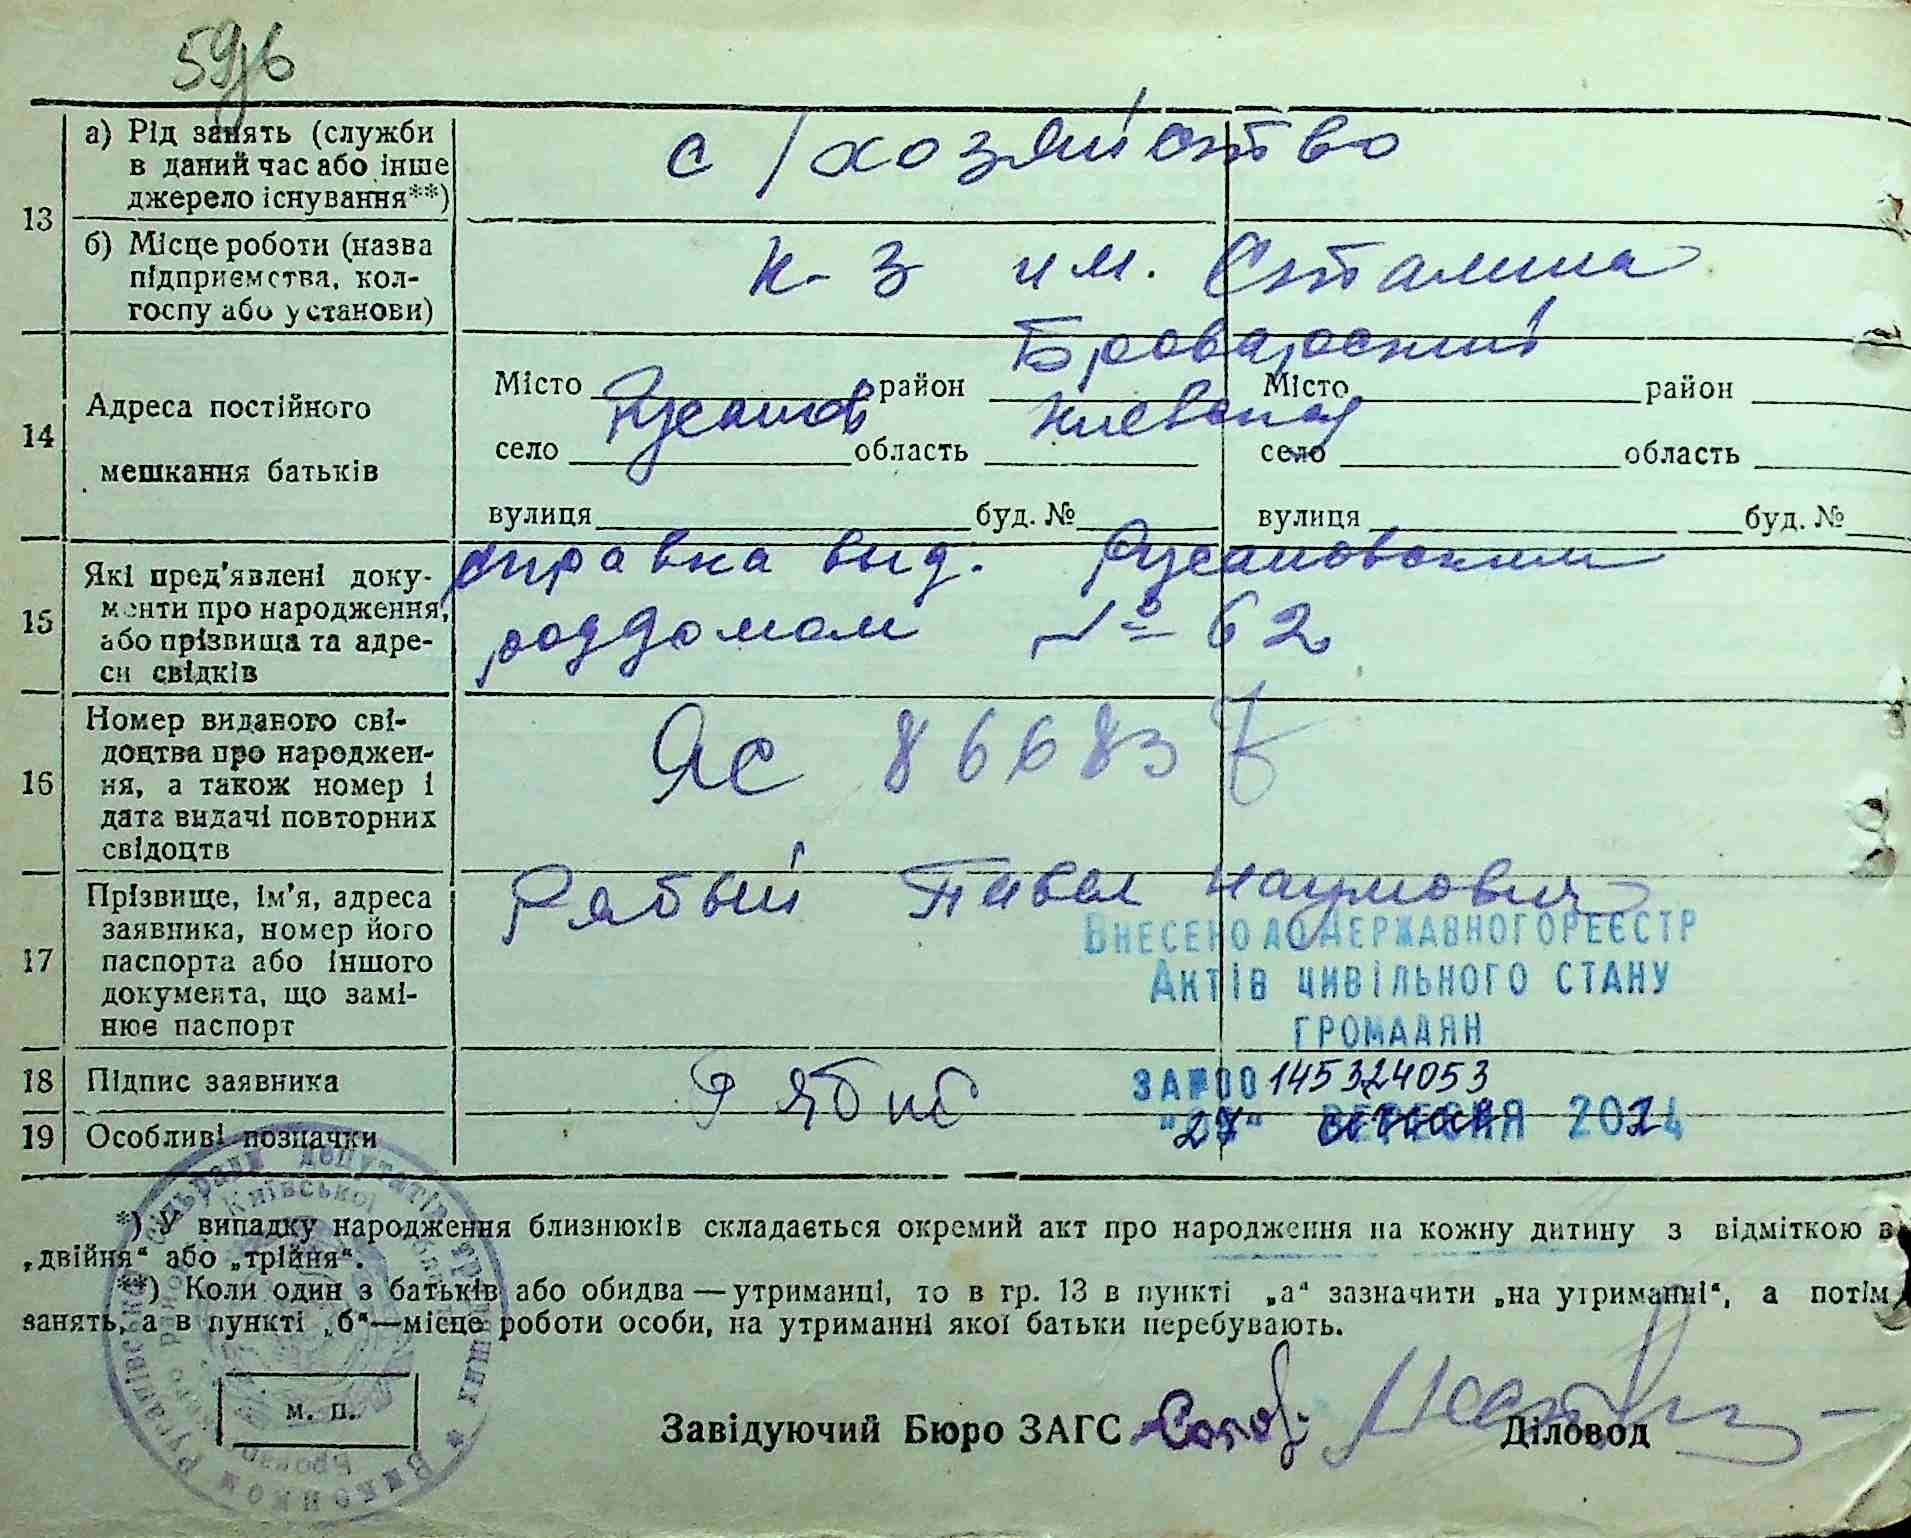 59
13
а) Рід занять (служби
в даний час або інше
джерело існування**)
с/хозяйство
б) Місце роботи (назва
підприємства, кол-
госпу або установи)
к-з им. Сталина
14
Адреса постійного
мешкання батьків
Броварской
Місто район Місто район
Русанов Киевская
село область село область
вулиця буд. № вулиця буд. №
15
Які пред'явлені доку-
менти про народження,
або прізвища та адре-
си свідків
справка выд. Русановским
роддомом № 62
16
Номер виданого сві-
доцтва про народжен-
ня, а також номер і
дата видачі повторних
свідоцтв
ЯС 866837
17
Прізвище, ім'я, адреса
заявника, номер його
паспорта або іншого
документа, що замі-
нює паспорт
Рябый Павел Наумович
Внесено до Державного реєстр
Актів цивільного стану
громадян
18
Підпис заявника
Рябий
за №00145324053
19
Особливі позначки
*) У випадку народження близнюків складається окремий акт про народження на кожну дитину з відміткою в
„двійня“ або „трійня“.
**) Коли один з батьків або обидва—утриманці, то в гр. 13 в пункті „а“ зазначити „на утриманні“, а потім
занять, а в пункті „б“—місце роботи особи, на утриманні якої батьки перебувають.
м. п.
Завідуючий Бюро ЗАГС
Діловод